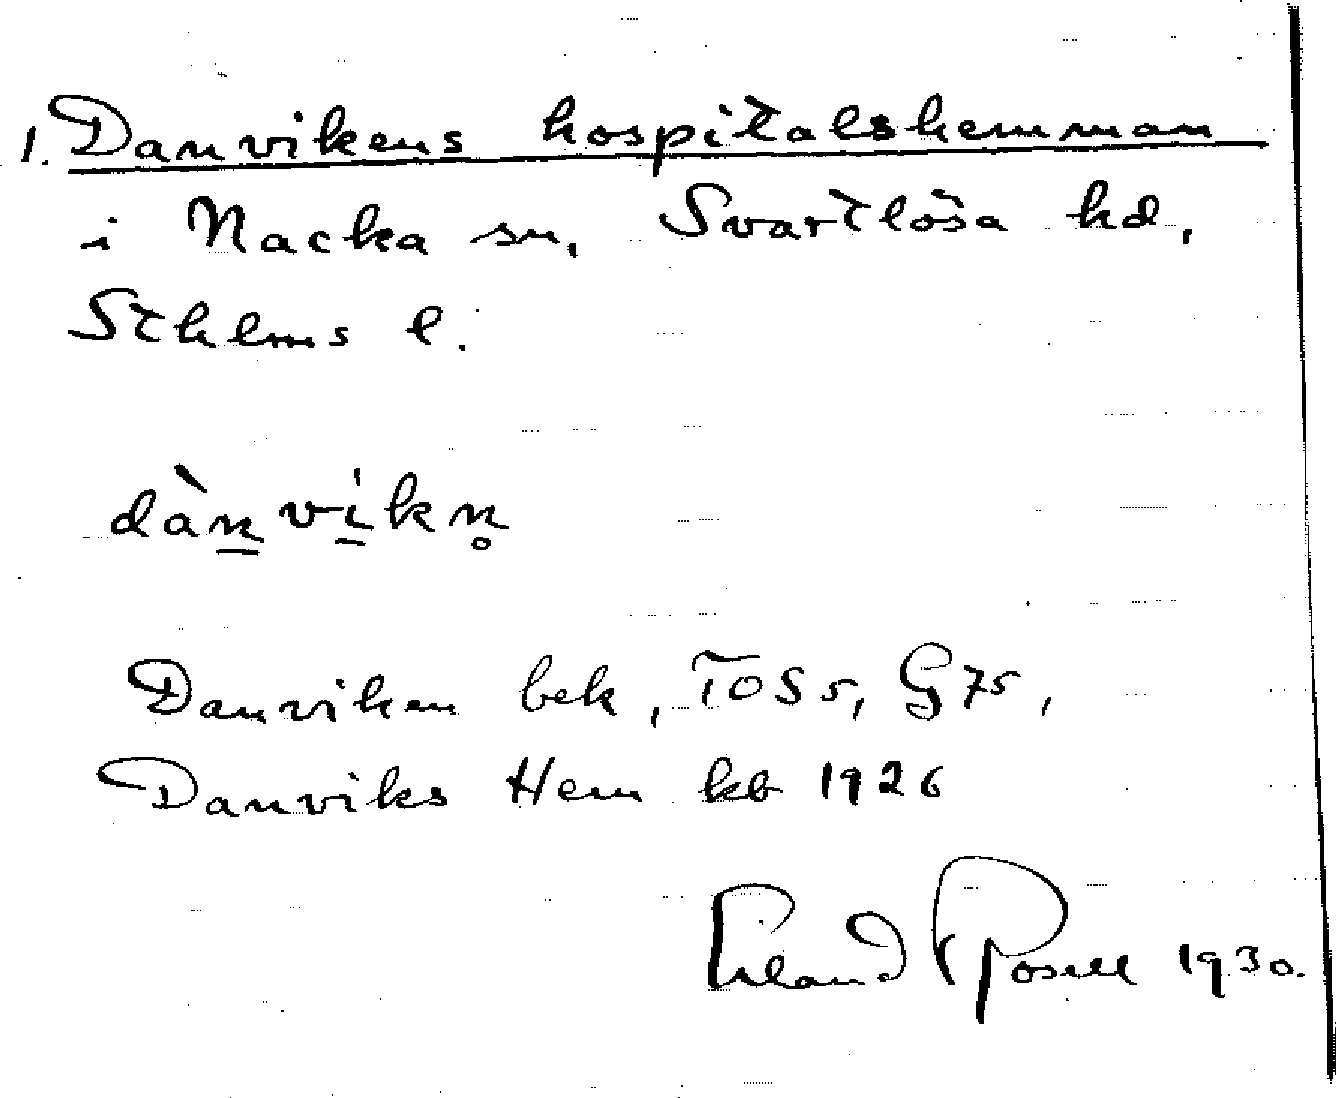 1. Danvikens hospitalshemman
i Nacka sn, Svartlösa hd,
Sthlms l.
dànvikn̥
Danviken bek, TOS 5, G 75,
Danviks Hem kb 1926
Erland Rosell 1930.